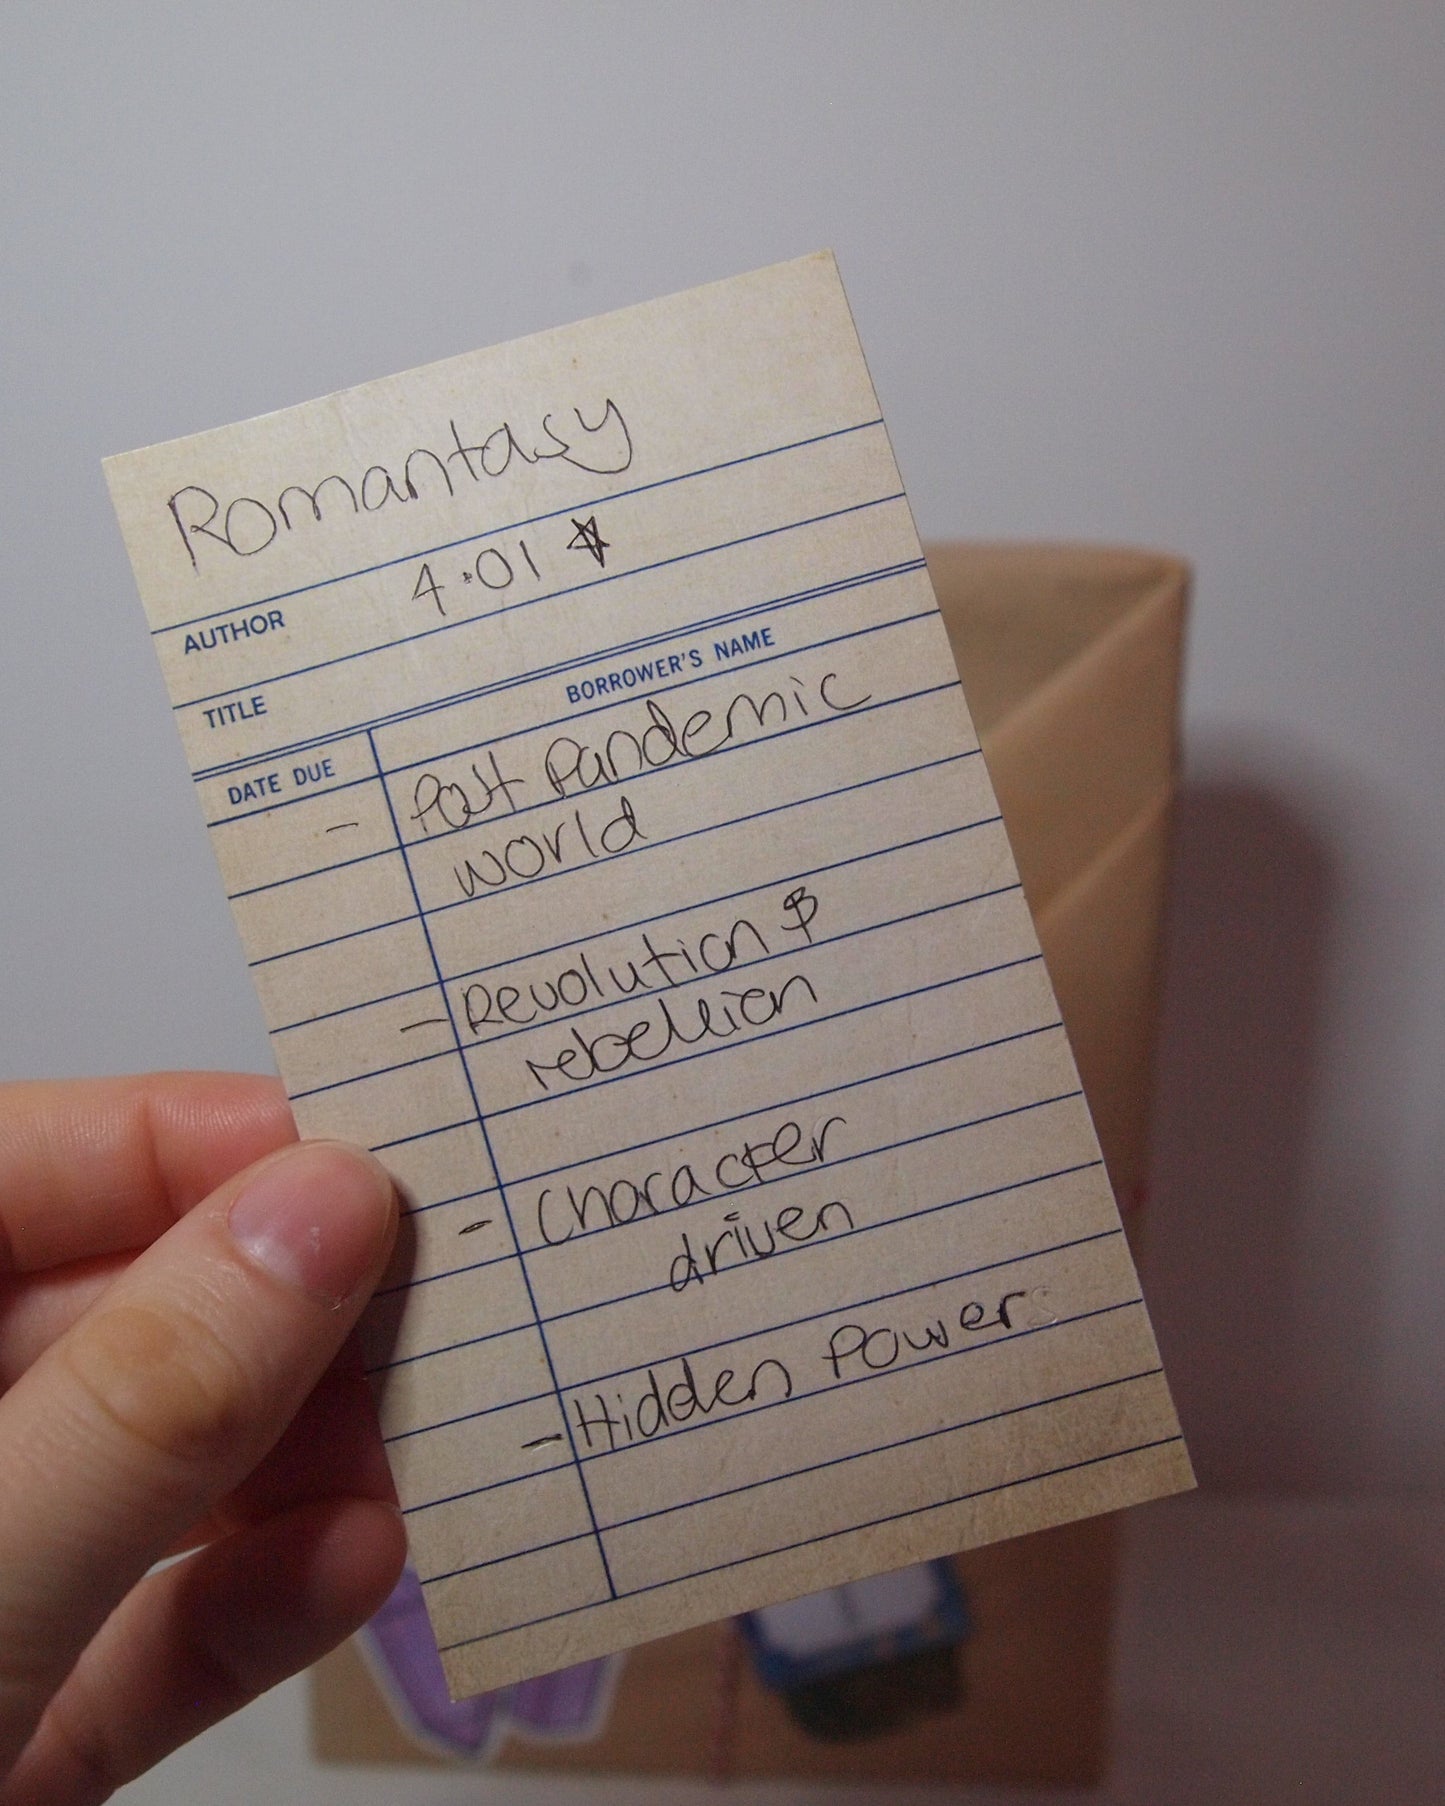 Romantasy
AUTHOR 4.01 ☆
TITLE
DATE DUE BORROWER'S NAME
- Post Pandemic
world
- Revolution &
rebellion
- Character
driven
- Hidden Powers